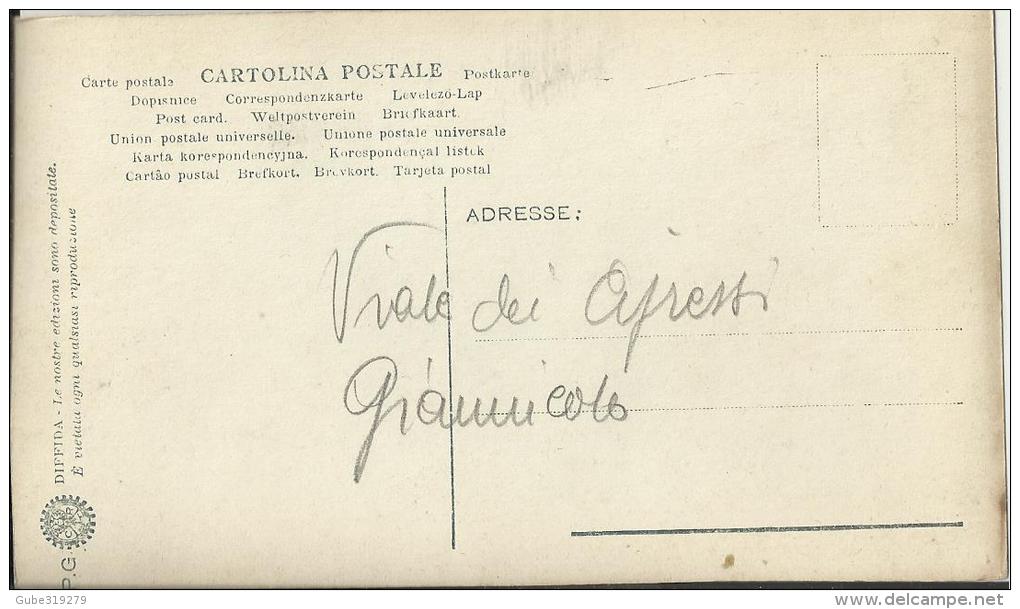 Carte postale CARTOLINA POSTALE Postkarte
Dopisnice Correspondenzkarte Levelező-Lap
Post card. Weltpostverein Briefkaart.
Union postale universelle. Unione postale universale
Karta korespondencyjna. Korespondençal listek
Cartâo postal Brefkort. Brevkort. Tarjeta postal
ADRESSE:
Viale dei
Giannicolo
DIFFIDA - Le nostre edizioni sono depositate.
È vietata ogni qualsiasi riproduzione
P.G.
Gube319279
delcampe.net